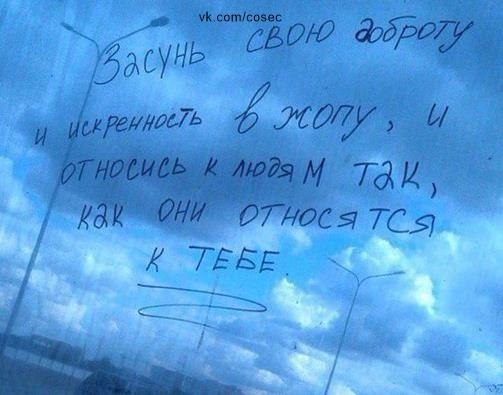 vk.com/cosec
Засунь свою доброту
и искренность в жопу, и
относись к людям так,
как они относятся
к тебе.